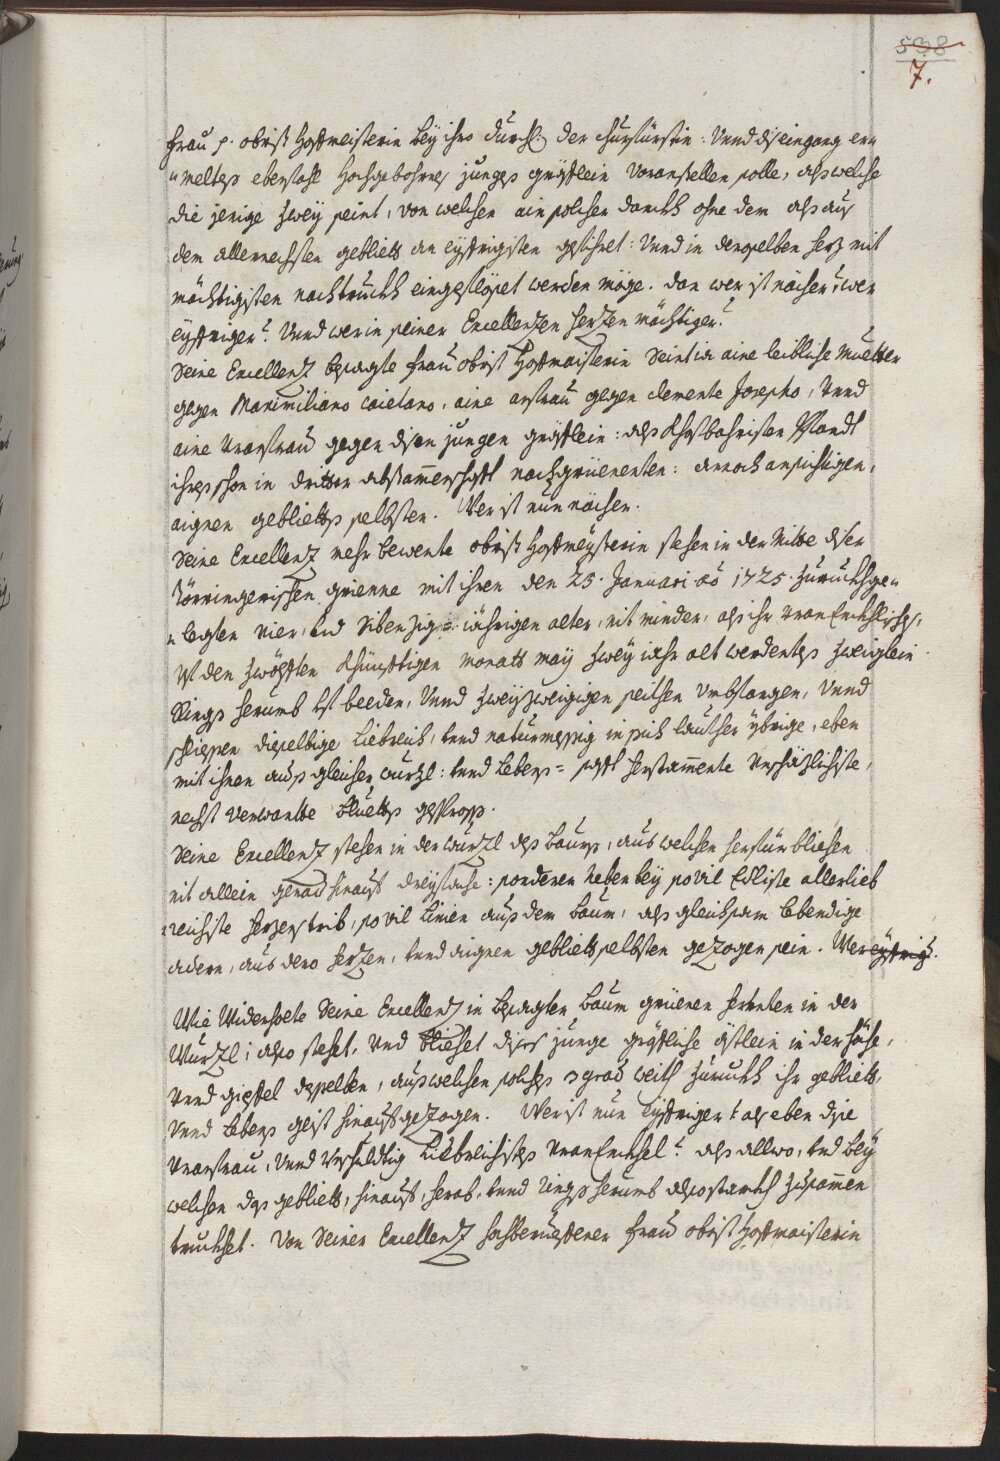 538
7.
Frau p. obrist Hoffmeisterin beÿ ihro durchl. der churfürstin: Vnnd diß eingang er„
„meltes eberstahl Hochgebohrnes junges gräfflein Voranstellen solle, alß welche
die jenige zweÿ seint, von welchen ain solcher danckh ohne dem alß auß
dem allernechsten geblietts am eÿffrigisten gefihret: Vnnd in denselben herz mit
mächtigisten nachtruckh eingeflößet werden möge. dan wer ist nächer? wer
eÿffriger? Vnnd wer in seiner Excellenzen herzen mächtiger?
Seine Excellenz besagte frau obrist Hoffmaisterin Seint ia aine leibliche Muetter
gegen Maximiliano Caietano, aine anfrau gegen clemente Josepho, Vnnd
aine Vranfrau gegen disen jungen gräfflein: alß
ihres schon in dritter abstammenschafft nachgrüenenten: annoch ansichtigen,
aignen gebliets selbsten. Wer ist nun nächer.
Seine Excellenz mehr bewente obrist Hoffmeÿsterin stehen in der Mitte diser
Törringerischen grienne mit ihren den 25. Januari aõ 1725. zuruckhge„
„legten vier, und Sibenzig= iährigen alter, nit minder, alß ihr Vran Enckhlisches,
Ist den zwölfften khünfftigen monatts maÿ zweÿ iahr alt werdentes zweiglein.
Rings herumb ist beeden, Vnnd zweÿzweigigen seithen Vmbfangen, Vnnd
schliessen dieselbige Liebreich, Vnnd naturmessig in sich lauther ybrige, eben
mit ihnen auß gleicher wurzl: Vnnd lebens= safft herstammente Vnschäzlichste,
nechst Verwantte bluetts gesspross.
Seine Excellenz stehen in der wurzl deß baums, aus welchen herfür bliehen
nit allein gerad hinauf dreÿfache: sonderen neben beÿ so vil Edliste allerlieb
reichste herzens trib, so vil linien auß dem baum, alß gleichsam lebendige
adern, aus dero herzen, Vnnd aignen gebliett selbsten gezogen sein. Wer eÿffrig.
Wie Widerholte Seine Excellenz in besagten baum grüenen herunten in der
Wurzl; also stehet, Vnd bliehet dises junge gräffliche ästlein in der höhe,
Vnnd gipffel desselben, auß welchen solches 3 grad weith zuruckh ihr gebliett,
Vnnd lebens geist hinauf gezogen. Wer ist nun Eÿffriger? als eben dise
Vranfrau, Vnnd Vnschuldtig Liebreichistes Vran Enckhel? alß allwo, und beÿ
welchen das gebliett, hinauf, herab, Vnnd Rings herumb also starckh zusammen
truckhet. Von Seiner Excellenz hochberüembter frau obrist Hoffmaisterin